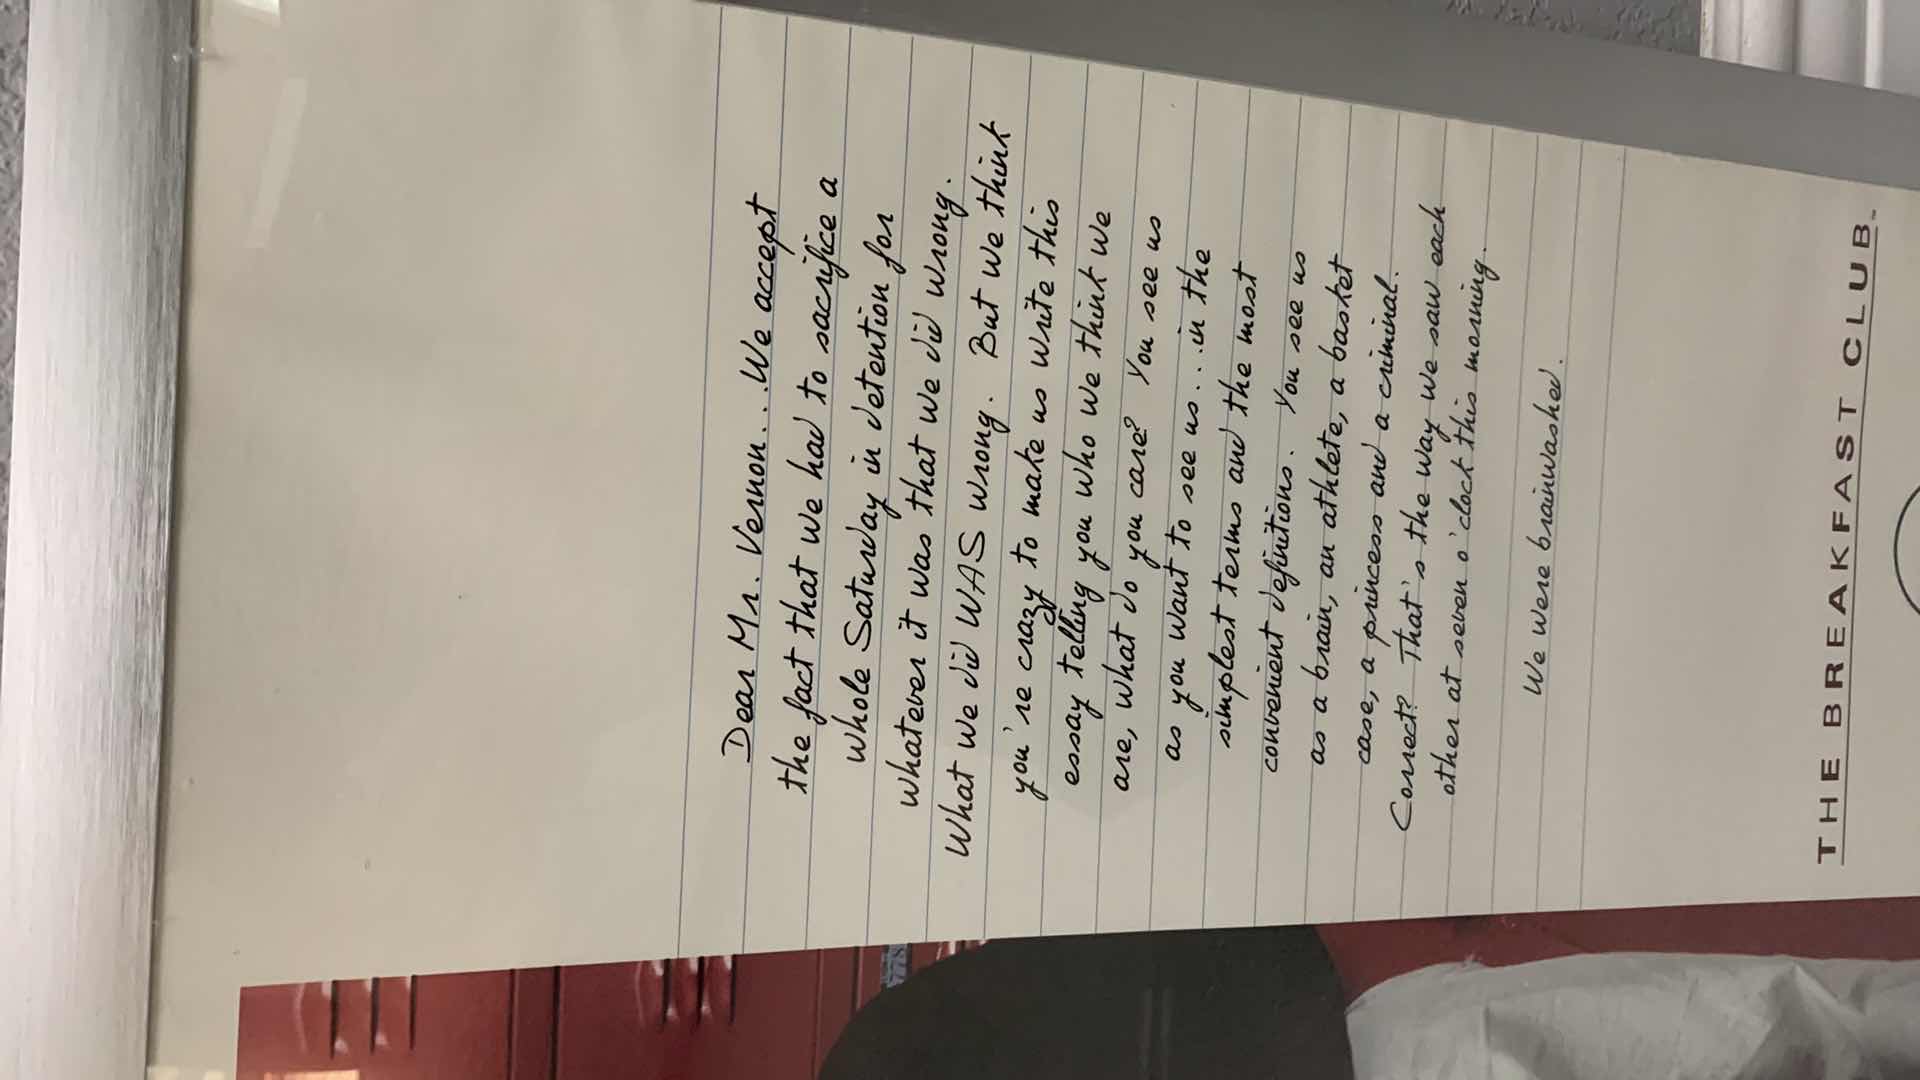 Dear Mr. Vernon...We accept
the fact that we had to sacrifice a
whole Saturday in detention for
whatever it was that we did wrong.
What we did WAS wrong. But we think
you're crazy to make us write this
essay telling you who we think we
are, what do you care? You see us
as you want to see us...in the
simplest terms and the most
convenient definitions. You see us
as a brain, an athlete, a basket
case, a princess and a criminal.
Correct? That's the way we saw each
other at seven o'clock this morning.
We were brainwashed.
THE BREAKFAST CLUB™